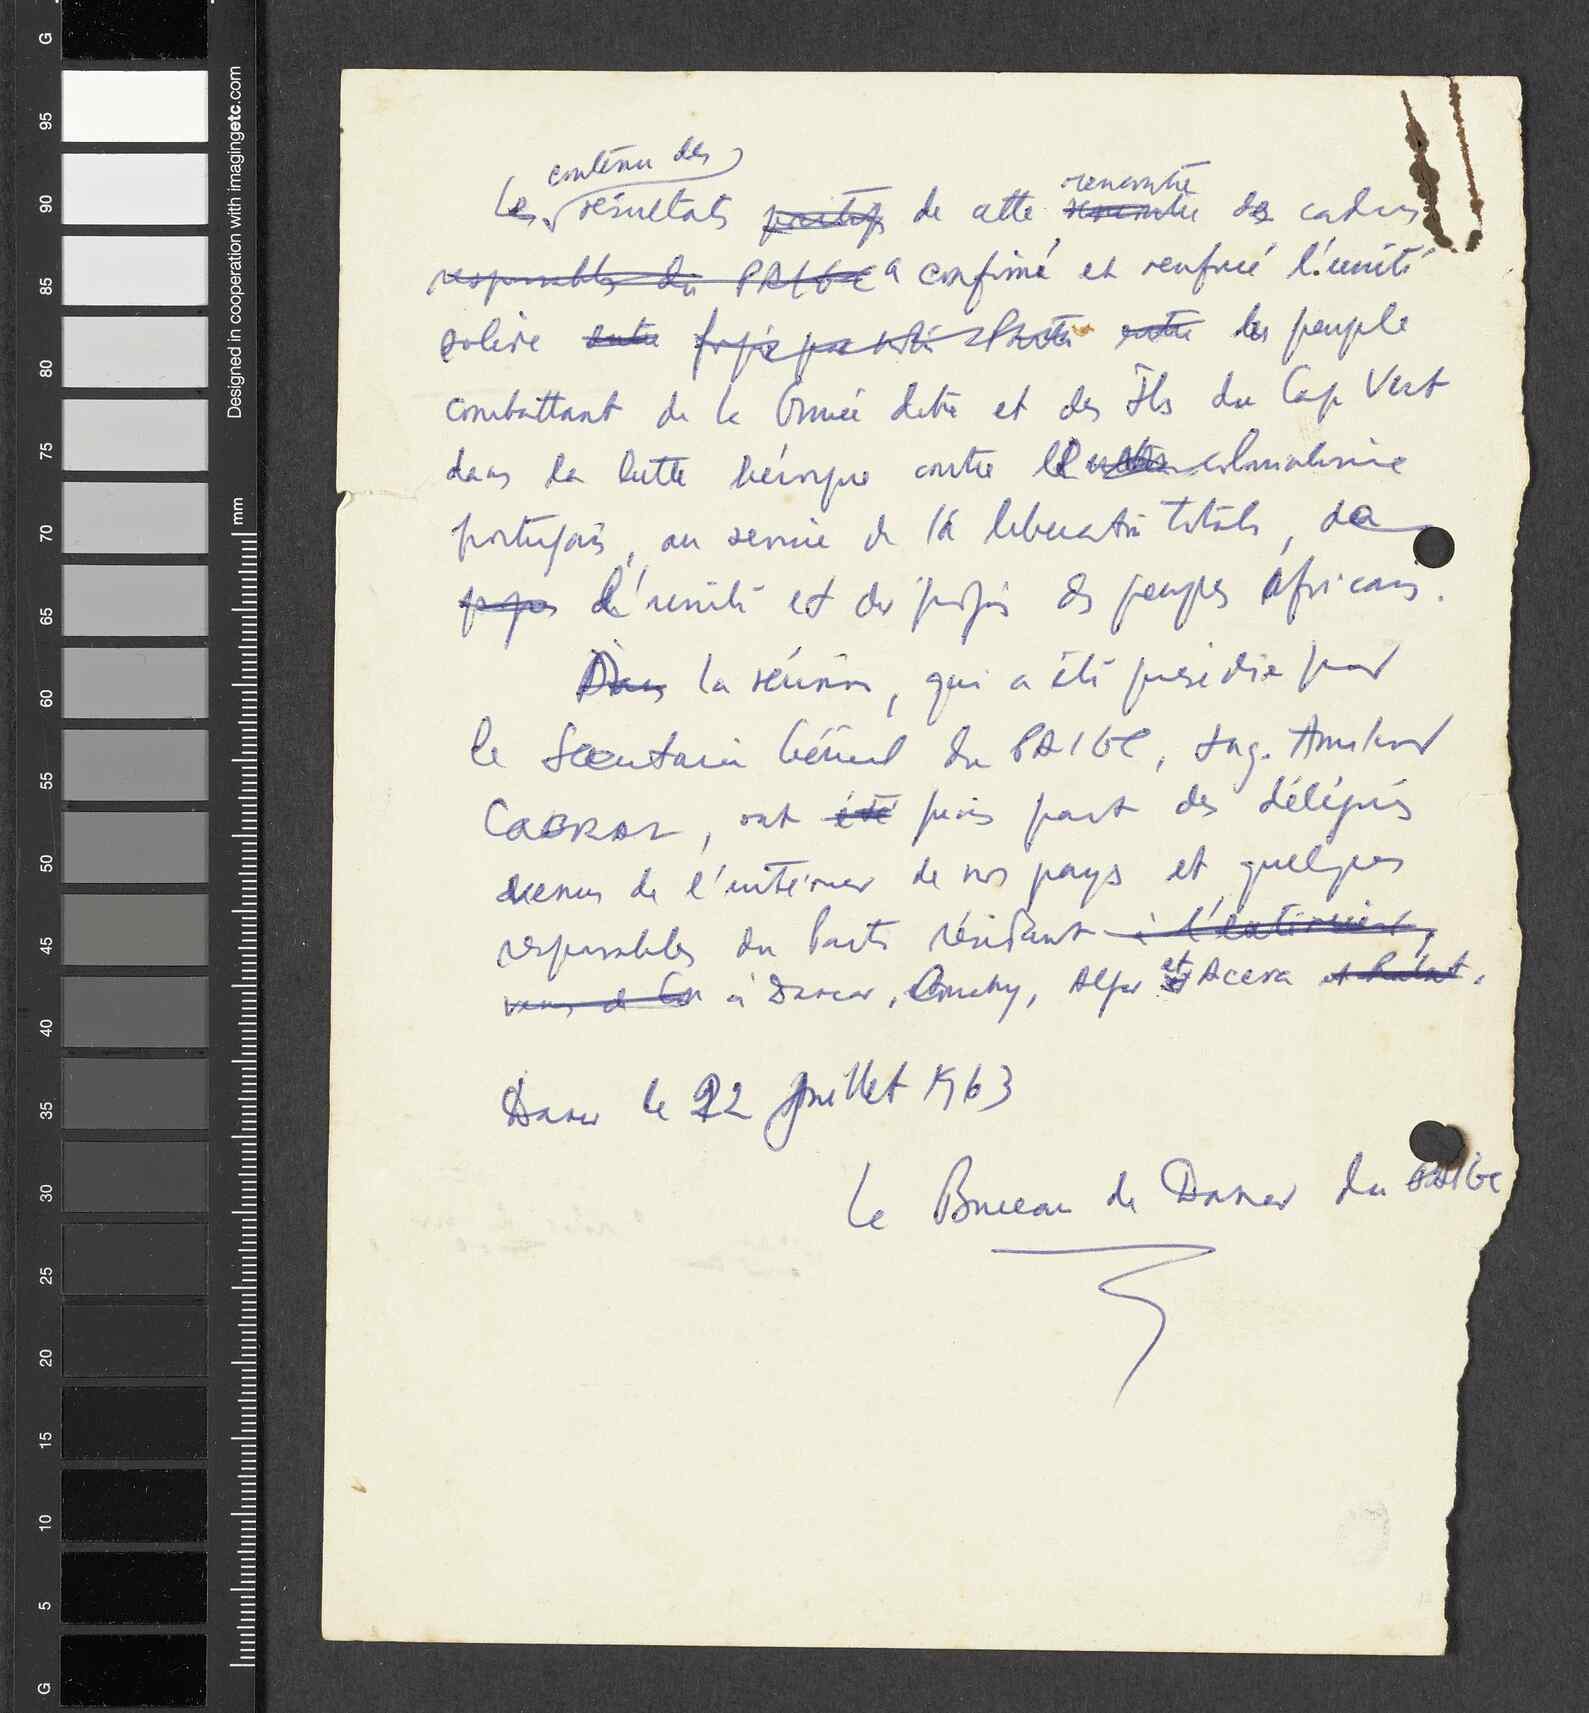 contenu des
Les résultats positifs de cette rencontre rencontre des cadres
responsables du PAIGC a confirmé et renforcé l'unité
solide entre forgée par notre Parti entre les peuple
combattant de la Guinée dite et des Iles du Cap Vert
dans la lutte héroique contre le colonialisme
portugais, au service de la libération totale, de
l'unité et du progrès des peuples africains.
Dans la réunion, qui a été présidée par
le Secrétaire Général du PAIGC, Ing. Amilcar
CABRAL, ont été pris part des délégués
venus de l'intérieur de nos pays et quelques
responsables du Parti résidant à l'extérieur,
venus de Con à Dakar, Conakry, Alger et Accra et Rabat.
Dakar le 22 Juillet 1963
Le Bureau de Dakar du PAIGC
G
95
90
85
80
75
70
65
60
55
50
45
40
35
30
25
20
15
10
5
G
Designed in cooperation with imagingetc.com
mm